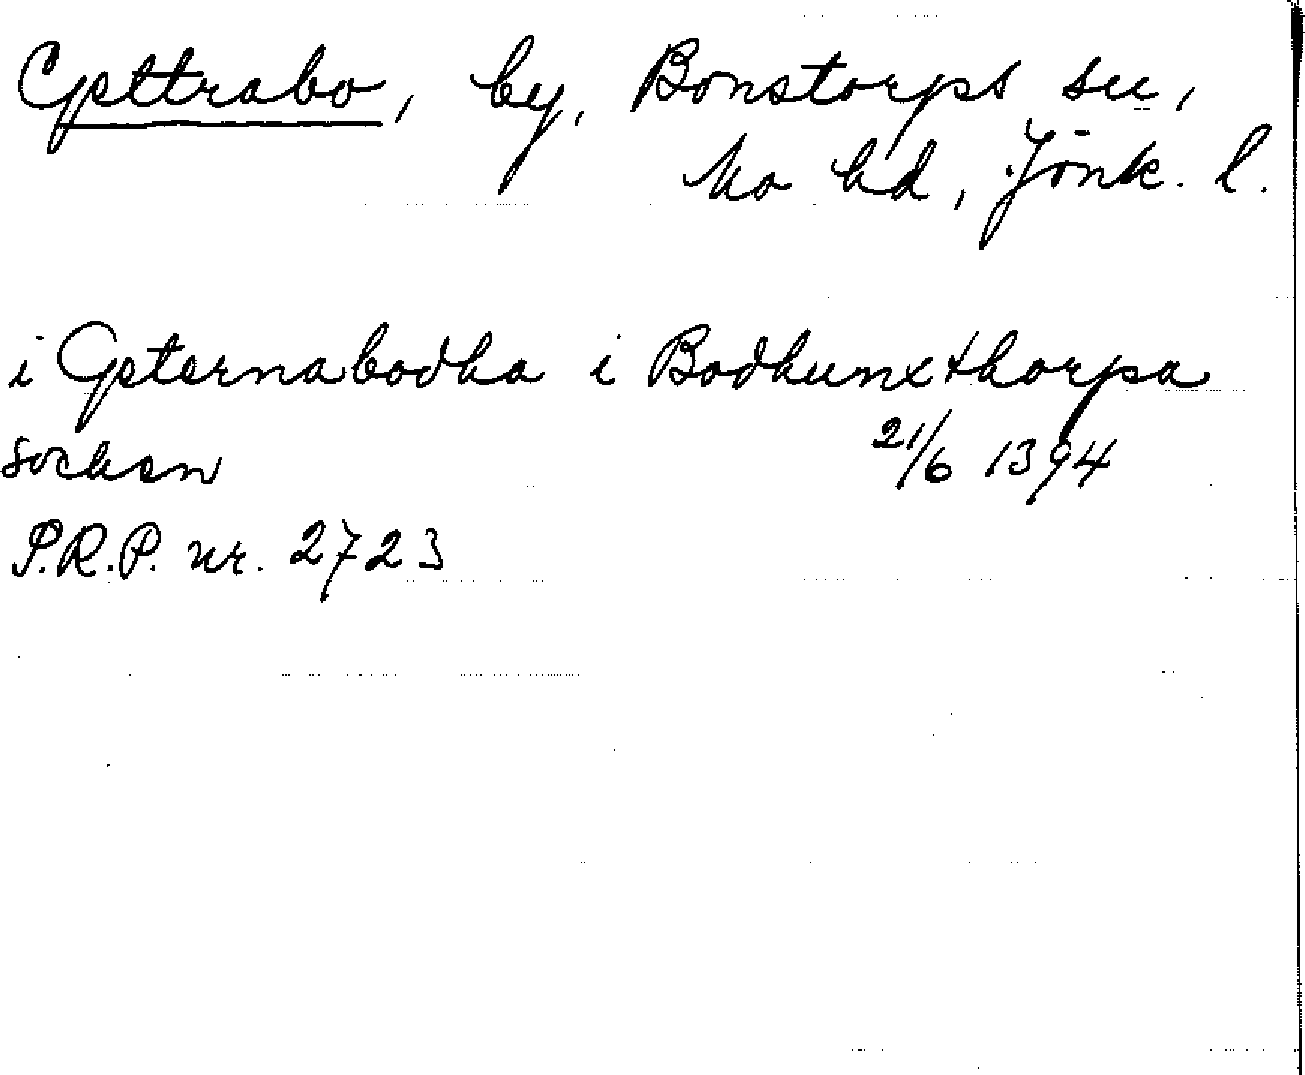 Gettrabo, by, Bonstorps sn,
Mo hd, Jönk. l.
i Geternabodha i Bodhunxthorpa
sochen 21/6 1394
P.R.P. nr. 2723